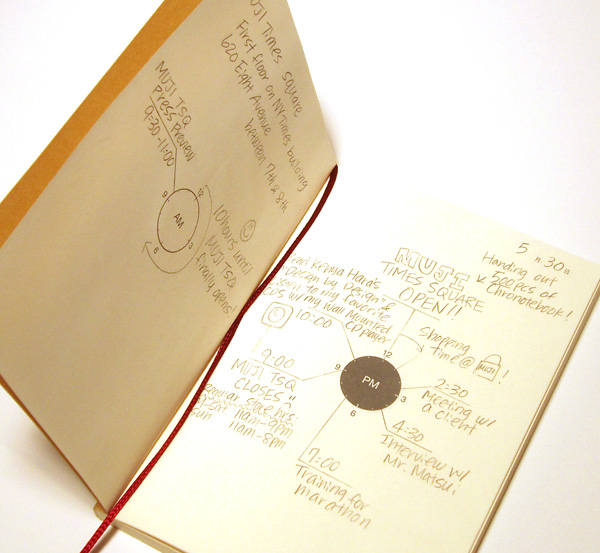 MUJI Times Square
First floor on NY Times building
620 Eight Avenue
between 7th & 8th
MUJI TSQ
Press Preview
9:30-11:00
12
9
AM
3
6
10 hours until
MUJI TSQ
finally opens!
5 "30"
MUJI
TIMES SQUARE
OPEN!!
Handing out
500 pcs of
Chronotebook!
Kenya Hara's
"Design by Design" &
listen to my favorite
CDs w/ my Wall Mounted
CD player
10:00
Shopping
time @ MUJI !
12
9
PM
3
6
9:00
MUJI TSQ
CLOSES"
regular store hrs:
11am-9pm
Sun 11am-8pm
2:30
Meeting w/
a client
4:30
Interview w/
Mr. Matsui
7:00
Training for
marathon